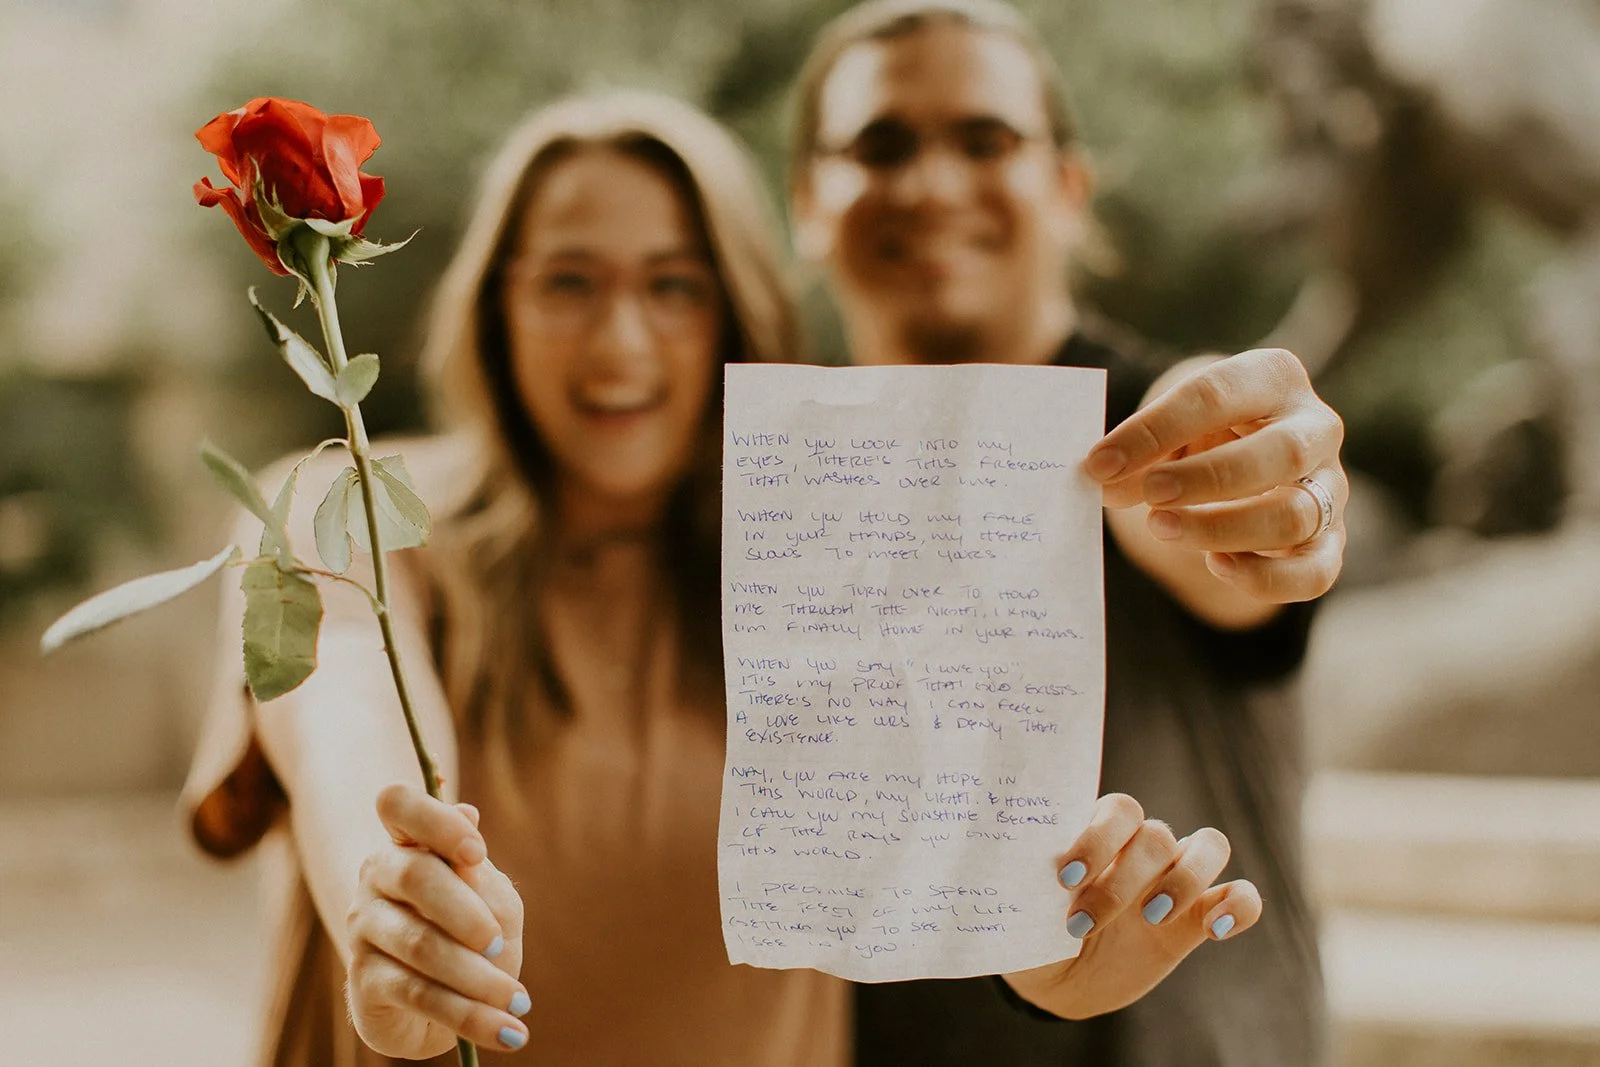 WHEN YOU LOOK INTO MY
EYES, THERE'S THIS FREEDOM
THAT WASHES OVER ME.
WHEN YOU HOLD MY FACE
IN YOUR HANDS, MY HEART
SLOWS TO MEET YOURS
WHEN YOU TURN OVER TO HOLD
ME THROUGH THE NIGHT, I KNOW
I'M FINALLY HOME IN YOUR ARMS.
WHEN YOU SAY "I LOVE YOU"
IT'S MY PROOF THAT GOD EXISTS.
THERE'S NO WAY I CAN FEEL
A LOVE LIKE OURS & DENY THAT
EXISTENCE.
NAY, YOU ARE MY HOPE IN
THIS WORLD, MY LIGHT & HOME.
I CALL YOU MY SUNSHINE BECAUSE
OF THE RAYS YOU GIVE
THIS WORLD.
I PROMISE TO SPEND
THE REST OF MY LIFE
GETTING YOU TO SEE WHAT
I SEE IN YOU.